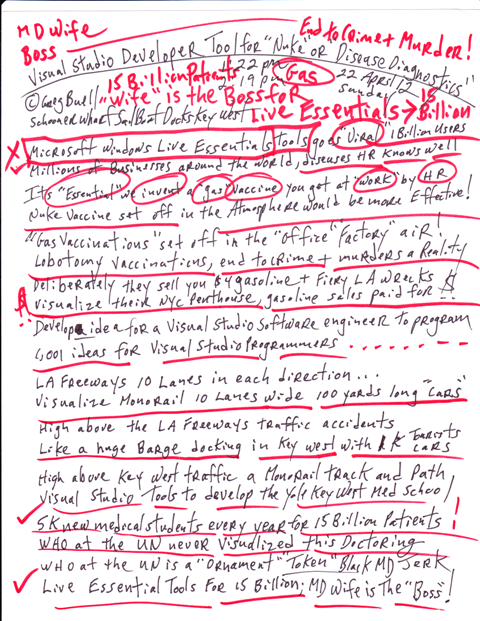 MD Wife
Boss
End to Crime + Murder!
Visual Studio Developer Tool for "Nuke" or Disease Diagnostics"
15 Billion Patients
22 pm
19 pm
Gas
22 April 12
Sunday
© Greg Buell
"Wife" is the Boss for 15 Billion
Schooner Wharf SailBoat Docks Key West
Live Essentials >
X Microsoft Windows Live Essentials Tools goes "Viral" 1 Billion Users
Millions of Businesses around the world, diseases HR knows well
Its "Essential" we invent a "gas" Vaccine you get at "work" by HR
Nuke Vaccine set off in the Atmosphere would be more Effective!
"Gas Vaccinations" set off in the "Office" "Factory" air!
Lobotomy Vaccinations, end to crime + murders a Reality
Deliberately they sell you $4 gasoline + Fiery LA Wrecks $
Visualize their NYC Penthouse, gasoline sales paid for !!
Develop idea for a Visual Studio Software engineer to program
4,001 ideas for Visual Studio Programmers
LA Freeways 10 Lanes in each direction...
Visualize Monorail 10 Lanes wide 100 yards long "cars"
High above the LA Freeways traffic accidents
Like a huge Barge docking in Key West with 1K Tourists
cars
High above Key West traffic a Monorail track and Path
Visual Studio Tools to develop the Yale Key West Med School
5K new medical students every year for 15 Billion Patients!
WHO at the UN never Visualized this Doctoring
WHO at the UN is a "Ornament" "Token" Black MD Jerk
Live Essential Tools For 15 Billion; MD Wife is The "Boss"!